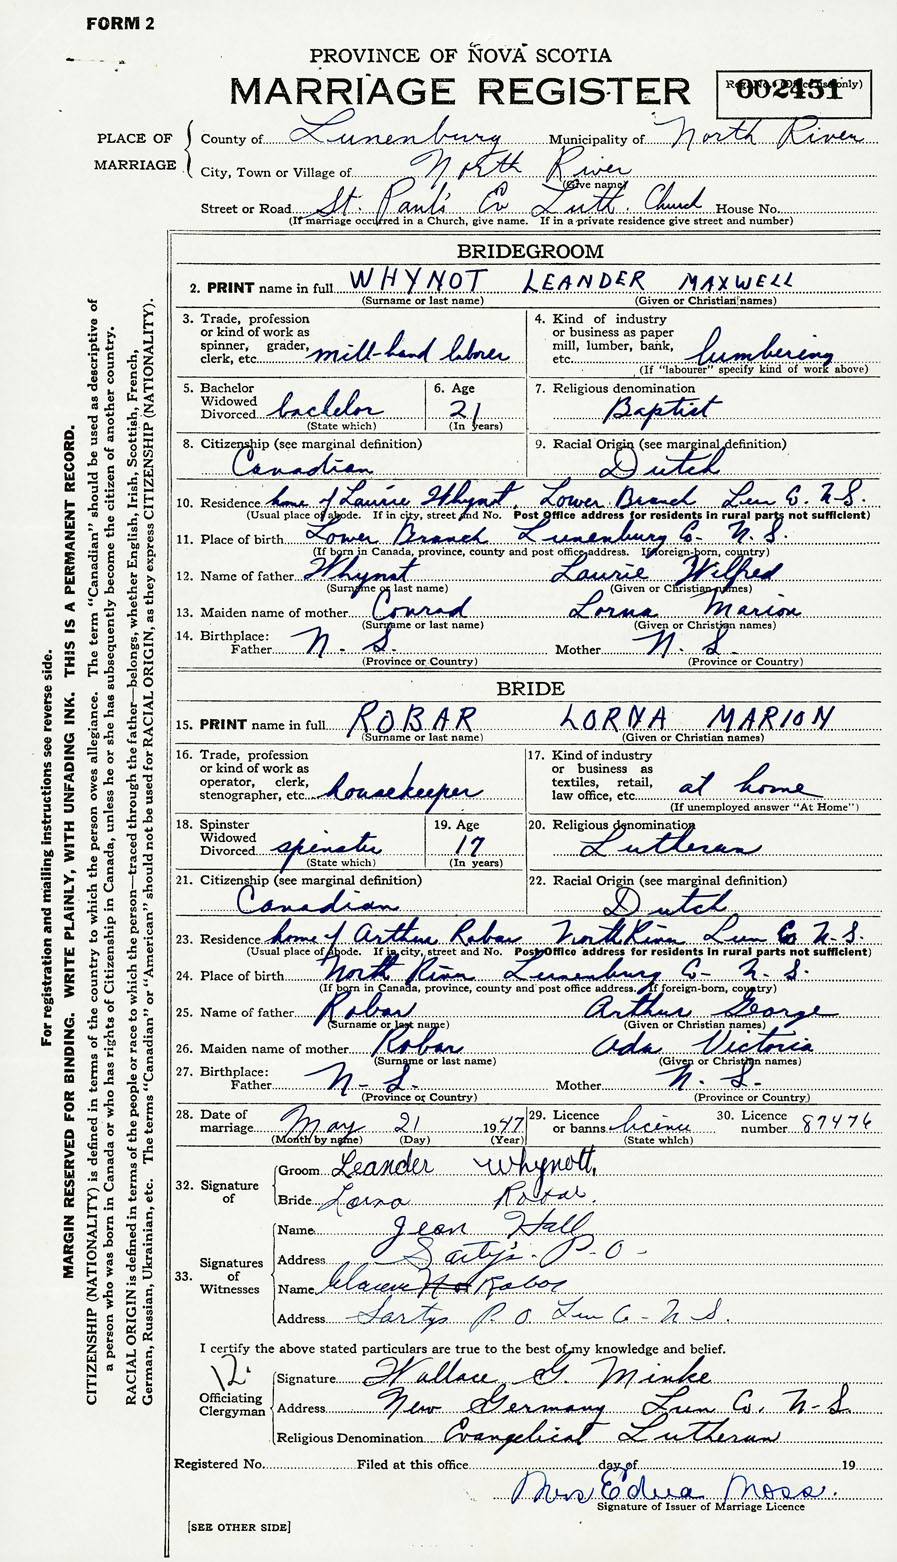 FORM 2
PROVINCE OF NOVA SCOTIA
MARRIAGE REGISTER
Reg. No. (Office use only)
002451
PLACE OF MARRIAGE
County of Lunenburg Municipality of North River
City, Town or Village of North River
(Give name)
Street or Road St. Paul's Ev Luth. Church House No.
(If marriage occurred in a Church, give name. If in a private residence give street and number)
BRIDEGROOM
2. PRINT name in full WHYNOT LEANDER MAXWELL
(Surname or last name) (Given or Christian names)
3. Trade, profession or kind of work as spinner, grader, clerk, etc. mill-hand laborer
4. Kind of industry or business as paper mill, lumber, bank, etc. lumbering
(If "labourer" specify kind of work above)
5. Bachelor Widowed Divorced bachelor
(State which)
6. Age 21
(In years)
7. Religious denomination Baptist
8. Citizenship (see marginal definition) Canadian
9. Racial Origin (see marginal definition) Dutch
10. Residence home of Laurie Whynot Lower Branch Lun Co. N.S.
(Usual place of abode. If in city, street and No. Post Office address for residents in rural parts not sufficient)
11. Place of birth Lower Branch Lunenburg Co- N. S.
(If born in Canada, province, county and post office address. If foreign-born, country)
12. Name of father Whynot Laurie Wilfred
(Surname or last name) (Given or Christian names)
13. Maiden name of mother Conrad Lorna Marion
(Surname or last name) (Given or Christian names)
14. Birthplace: Father N. S. Mother N. S.
(Province or Country) (Province or Country)
BRIDE
15. PRINT name in full ROBAR LORNA MARION
(Surname or last name) (Given or Christian names)
16. Trade, profession or kind of work as operator, clerk, stenographer, etc. housekeeper
17. Kind of industry or business as textiles, retail, law office, etc. at home
(If unemployed answer "At Home")
18. Spinster Widowed Divorced spinster
(State which)
19. Age 17
(In years)
20. Religious denomination Lutheran
21. Citizenship (see marginal definition) Canadian
22. Racial Origin (see marginal definition) Dutch
23. Residence home of Arthur Robar North River Lun Co N-S.
(Usual place of abode. If in city, street and No. Post Office address for residents in rural parts not sufficient)
24. Place of birth North River Lunenburg Co- N. S.
(If born in Canada, province, county and post office address. If foreign-born, country)
25. Name of father Robar Arthur George
(Surname or last name) (Given or Christian names)
26. Maiden name of mother Robar Ada Victoria
(Surname or last name) (Given or Christian names)
27. Birthplace: Father N- S. Mother N. S.
(Province or Country) (Province or Country)
28. Date of marriage May 21 1947
(Month by name) (Day) (Year)
29. Licence or banns licence
(State which)
30. Licence number 87476
32. Signature of
Groom Leander Whynott,
Bride Lorna Robar.
33. Signatures of Witnesses
Name Jean Hall
Address Sarty's. P-O-
Name Robar
Address Sartys P. O Lun Co- N S.
I certify the above stated particulars are true to the best of my knowledge and belief.
12.
Officiating Clergyman
Signature Wallace G. Minke
Address New Germany Lun Co. N-S.
Religious Denomination Evangelical Lutheran
Registered No. Filed at this office day of 19
Mrs Edna Moss.
Signature of Issuer of Marriage Licence
[SEE OTHER SIDE]
For registration and mailing instructions see reverse side.
MARGIN RESERVED FOR BINDING. WRITE PLAINLY, WITH UNFADING INK. THIS IS A PERMANENT RECORD.
CITIZENSHIP (NATIONALITY) is defined in terms of the country to which the person owes allegiance. The term "Canadian" should be used as descriptive of
a person who was born in Canada or who has rights of Citizenship in Canada, unless he or she has subsequently become the citizen of another country.
RACIAL ORIGIN is defined in terms of the people or race to which the person—traced through the father—belongs, whether English, Irish, Scottish, French,
German, Russian, Ukrainian, etc. The terms "Canadian" or "American" should not be used for RACIAL ORIGIN, as they express CITIZENSHIP (NATIONALITY).